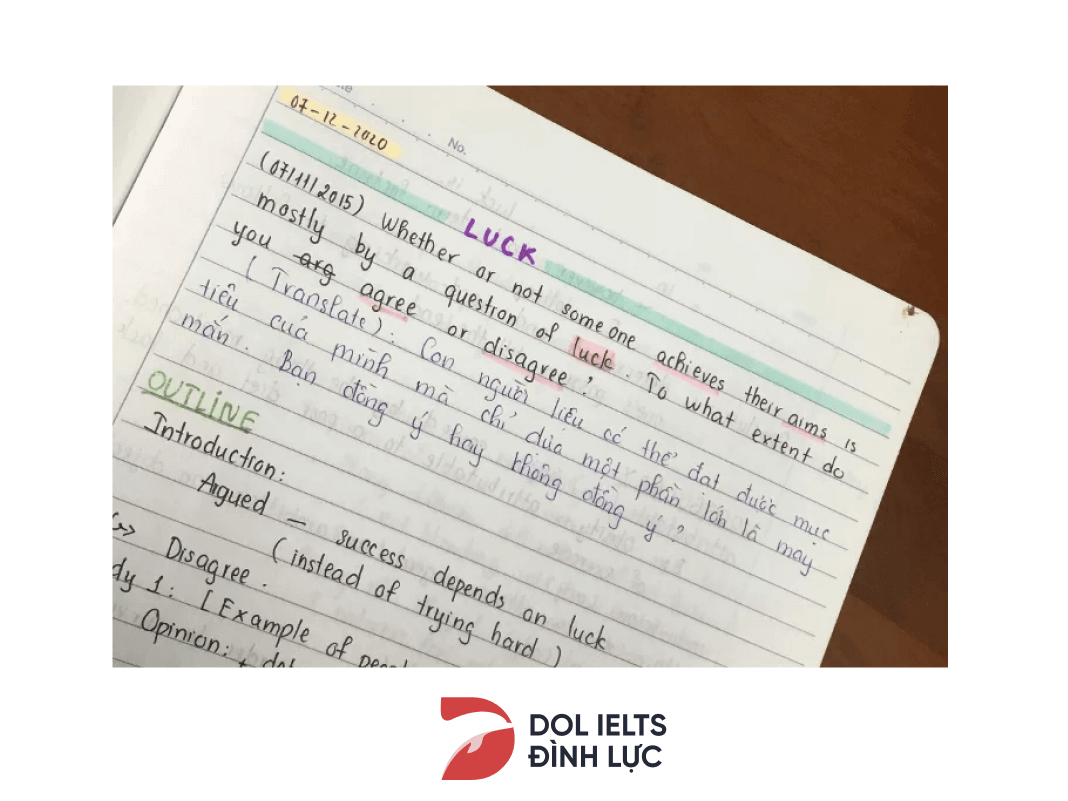 No.
07-12-2020
LUCK
(07/11/2015) Whether or not someone achieves their aims is
mostly by a question of luck. To what extent do
you arg agree or disagree?
(Translate): Con người liệu có thể đạt được mục
tiêu của mình mà chỉ dựa một phần lớn là may
mắn. Bạn đồng ý hay không đồng ý?
OUTLINE
Introduction:
Argued – success depends on luck
(instead of trying hard)
Disagree:
dy 1: [Example of
Opinion: +
DOL IELTS
ĐÌNH LỰC